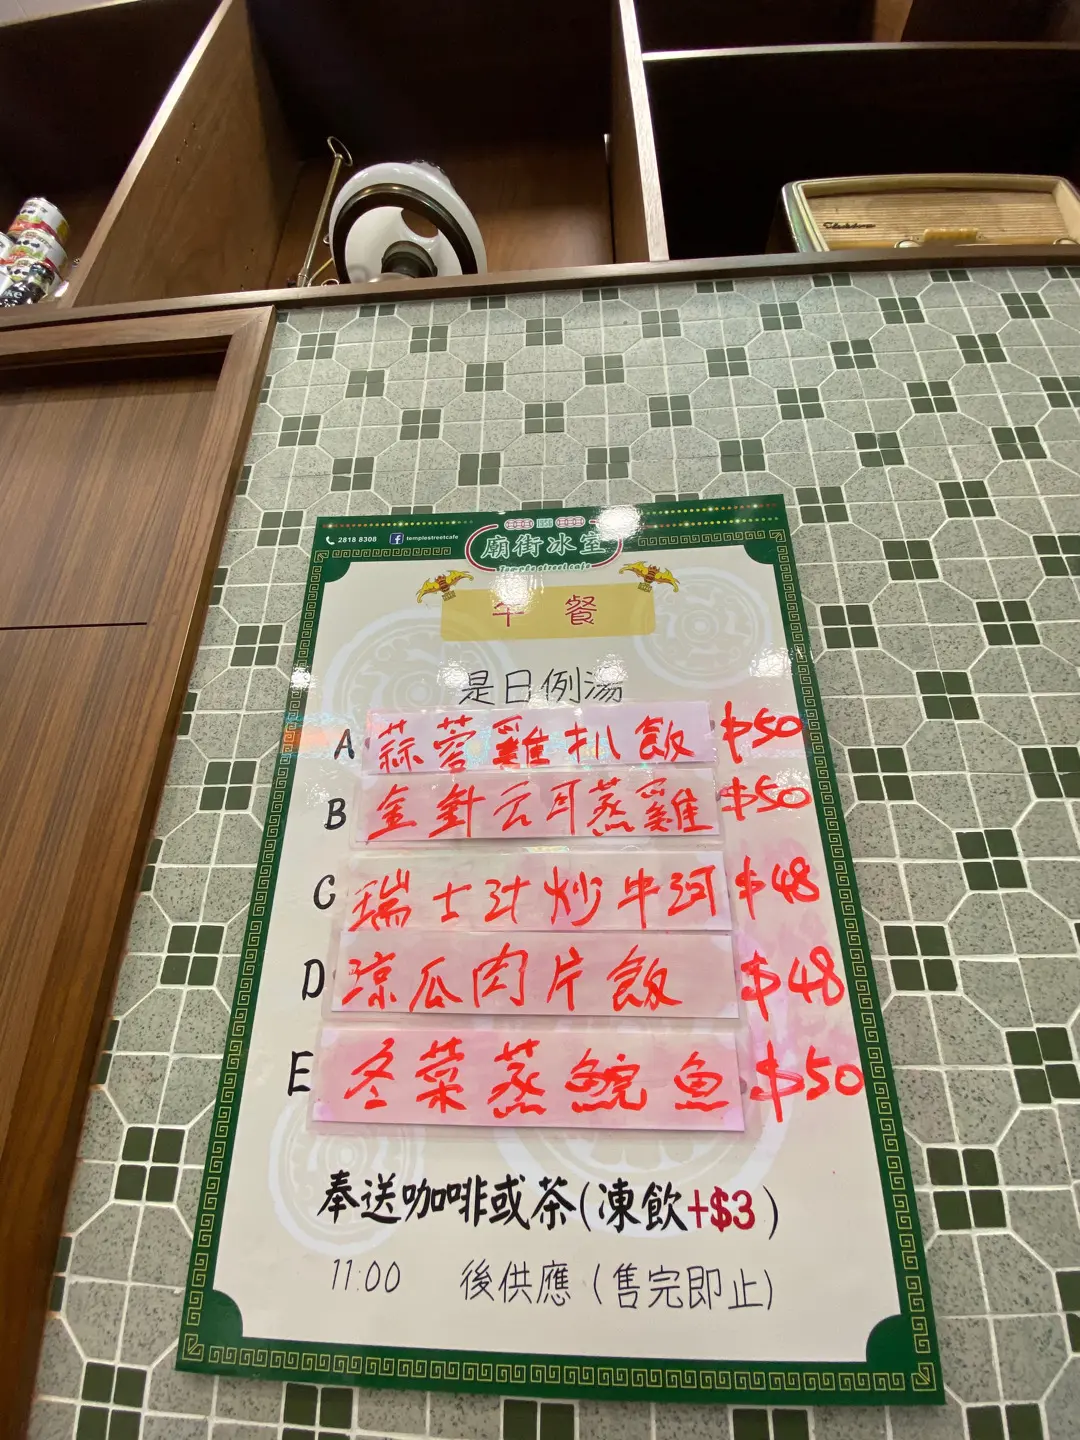 2818 8308 templestreetcafe
1950
廟街冰室
Temple street cafe
午餐
是日例湯
A 蒜蓉雞扒飯 $50
B 金針云耳蒸雞 $50
C 瑞士汁炒牛河 $48
D 涼瓜肉片飯 $48
E 冬菜蒸鯇魚 $50
奉送咖啡或茶(凍飲+$3)
11:00 後供應(售完即止)